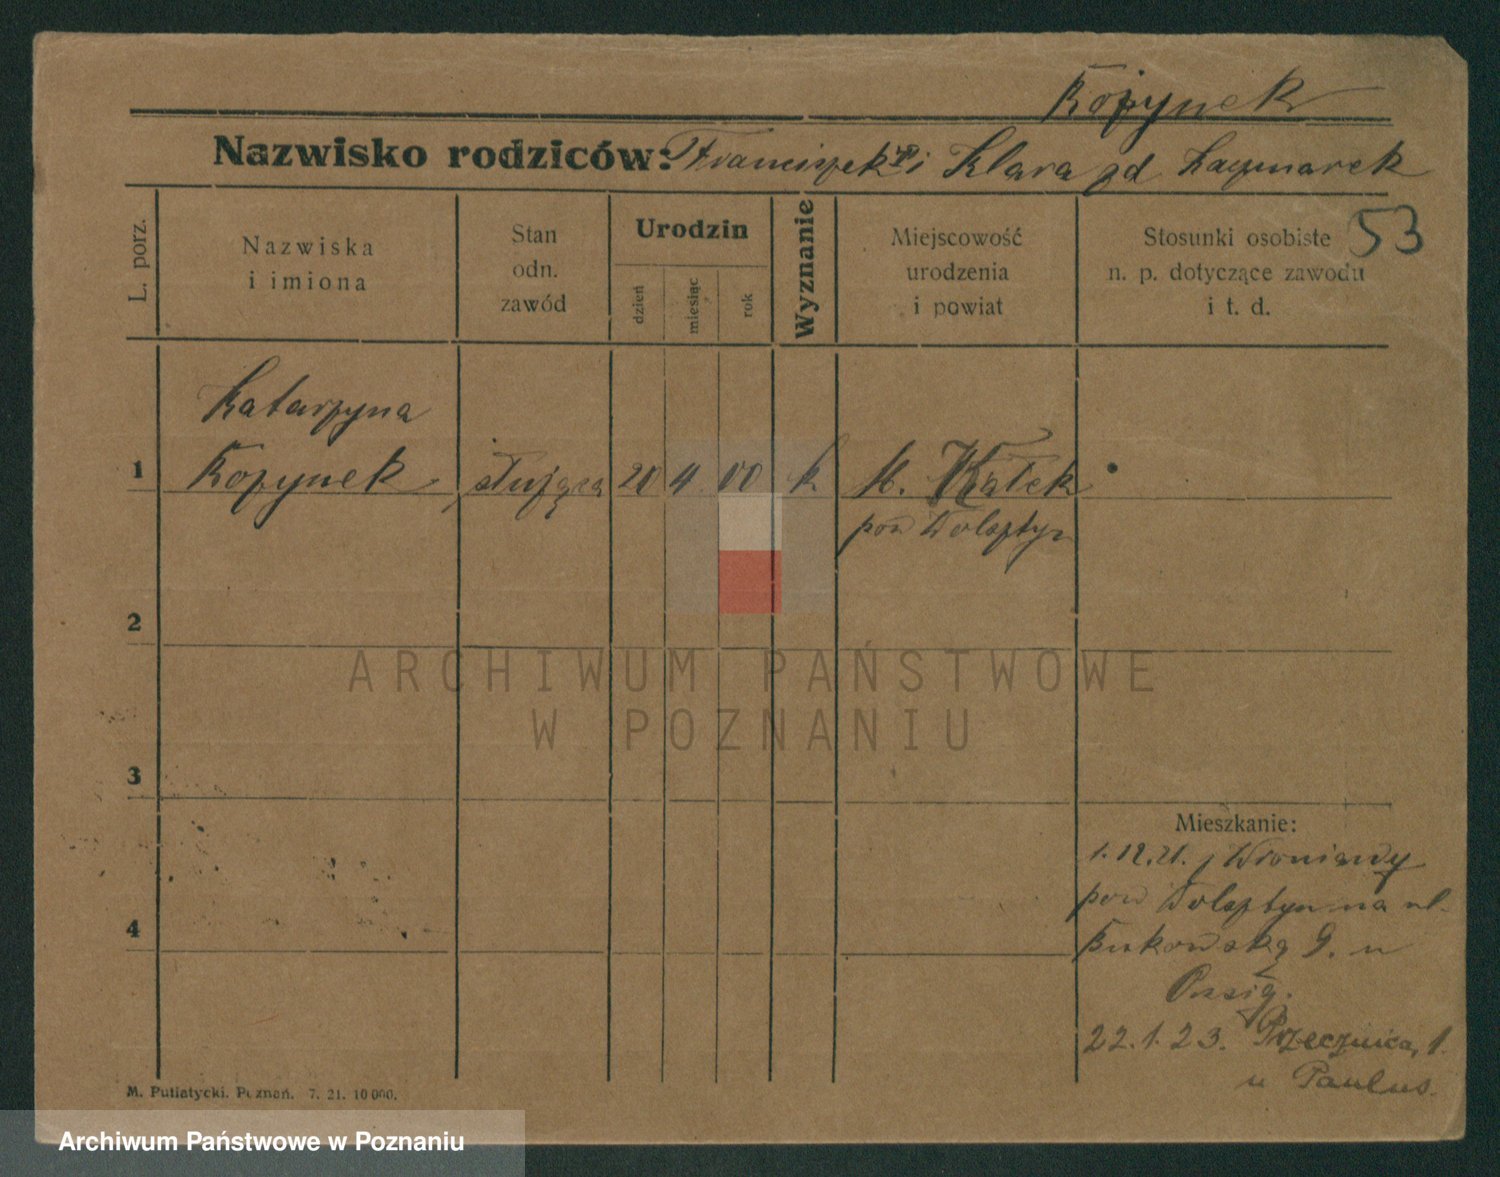 Kozynek
Nazwisko rodziców: Franciszek i Klara zd Kaczmarek
L. porz.
Nazwiska
i imiona
Stan
odn.
zawód
Urodzin
dzień
miesiąc
rok
Wyznanie
Miejscowość
urodzenia
i powiat
Stosunki osobiste
n. p. dotyczące zawodu
i t. d.
53
Katarzyna
1 Kozynek służąca 20 4. 00 k M. Kątek
pow Wolsztyn
2
3
4
ARCHIWUM PAŃSTWOWE
W POZNANIU
Mieszkanie:
1.12.21. z Wroniawy
pow Wolsztyn na ul.
Bukowską 9. u
22.1.23. Przecznica, 1.
u Paulus.
M. Putiatycki. Poznań. 7. 21. 10 000.
Archiwum Państwowe w Poznaniu